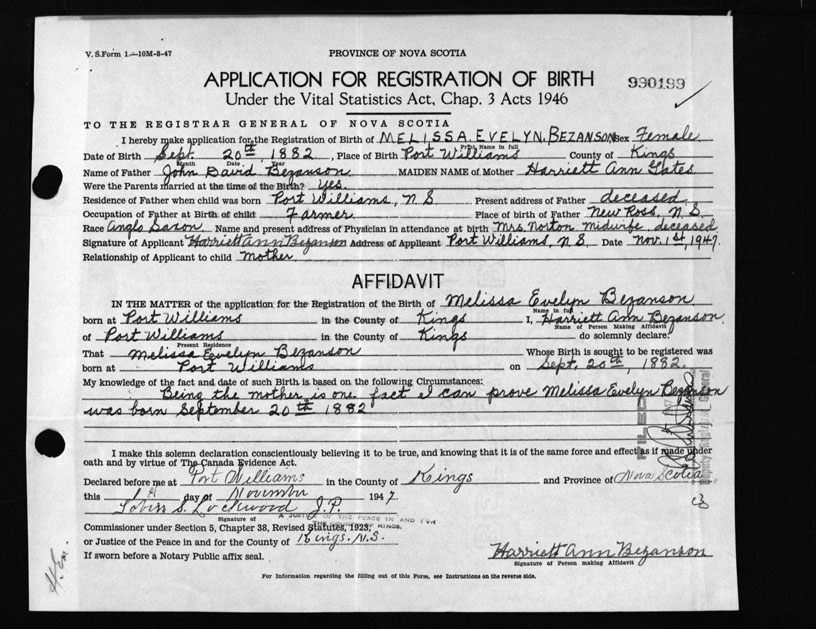 V. S. Form 1.—10M-8-47
PROVINCE OF NOVA SCOTIA
APPLICATION FOR REGISTRATION OF BIRTH
930199
Under the Vital Statistics Act, Chap. 3 Acts 1946
TO THE REGISTRAR GENERAL OF NOVA SCOTIA
I hereby make application for the Registration of Birth of MELISSA. EVELYN. BEZANSON Sex Female
Print Name in full
Date of Birth Sept. 20th, 1882, Place of Birth Port Williams County of Kings
Month Date, Year
Name of Father John David Bezanson MAIDEN NAME of Mother Harriett Ann Gates
Were the Parents married at the time of the Birth? yes.
Residence of Father when child was born Port Williams, N S Present address of Father deceased
Occupation of Father at Birth of child Farmer. Place of birth of Father New Ross, N. S.
Race Anglo Saxon Name and present address of Physician in attendance at birth Mrs. Norton midwife deceased
Signature of Applicant Harriett Ann Bezanson Address of Applicant Port Williams, N. S. Date Nov. 1st, 1947.
Relationship of Applicant to child mother
AFFIDAVIT
IN THE MATTER of the application for the Registration of the Birth of Melissa Evelyn Bezanson
Name in full
born at Port Williams in the County of Kings I, Harriett Ann Bezanson
Name of Person Making Affidavit
of Port Williams in the County of Kings do solemnly declare:
Present Residence
That Melissa Evelyn Bezanson Whose Birth is sought to be registered was
born at Port Williams on Sept. 20th, 1882.
My knowledge of the fact and date of such Birth is based on the following Circumstances:
Being the mother is one fact I can prove Melissa Evelyn Bezanson
was born September 20th 1882
FILED
Deputy Registrar General
I make this solemn declaration conscientiously believing it to be true, and knowing that it is of the same force and effect as if made under
oath and by virtue of The Canada Evidence Act.
Declared before me at Port Williams in the County of Kings and Province of Nova Scotia
this 1st day of November 1947
Lockwood J. P.
Signature of
A JUSTICE OF THE PEACE IN AND FOR
THE COUNTY OF KINGS.
Commissioner under Section 5, Chapter 38, Revised Statutes, 1923,
or Justice of the Peace in and for the County of Kings. N.S.
If sworn before a Notary Public affix seal.
Harriett Ann Bezanson
Signature of Person making Affidavit
For Information regarding the filling out of this Form, see Instructions on the reverse side.